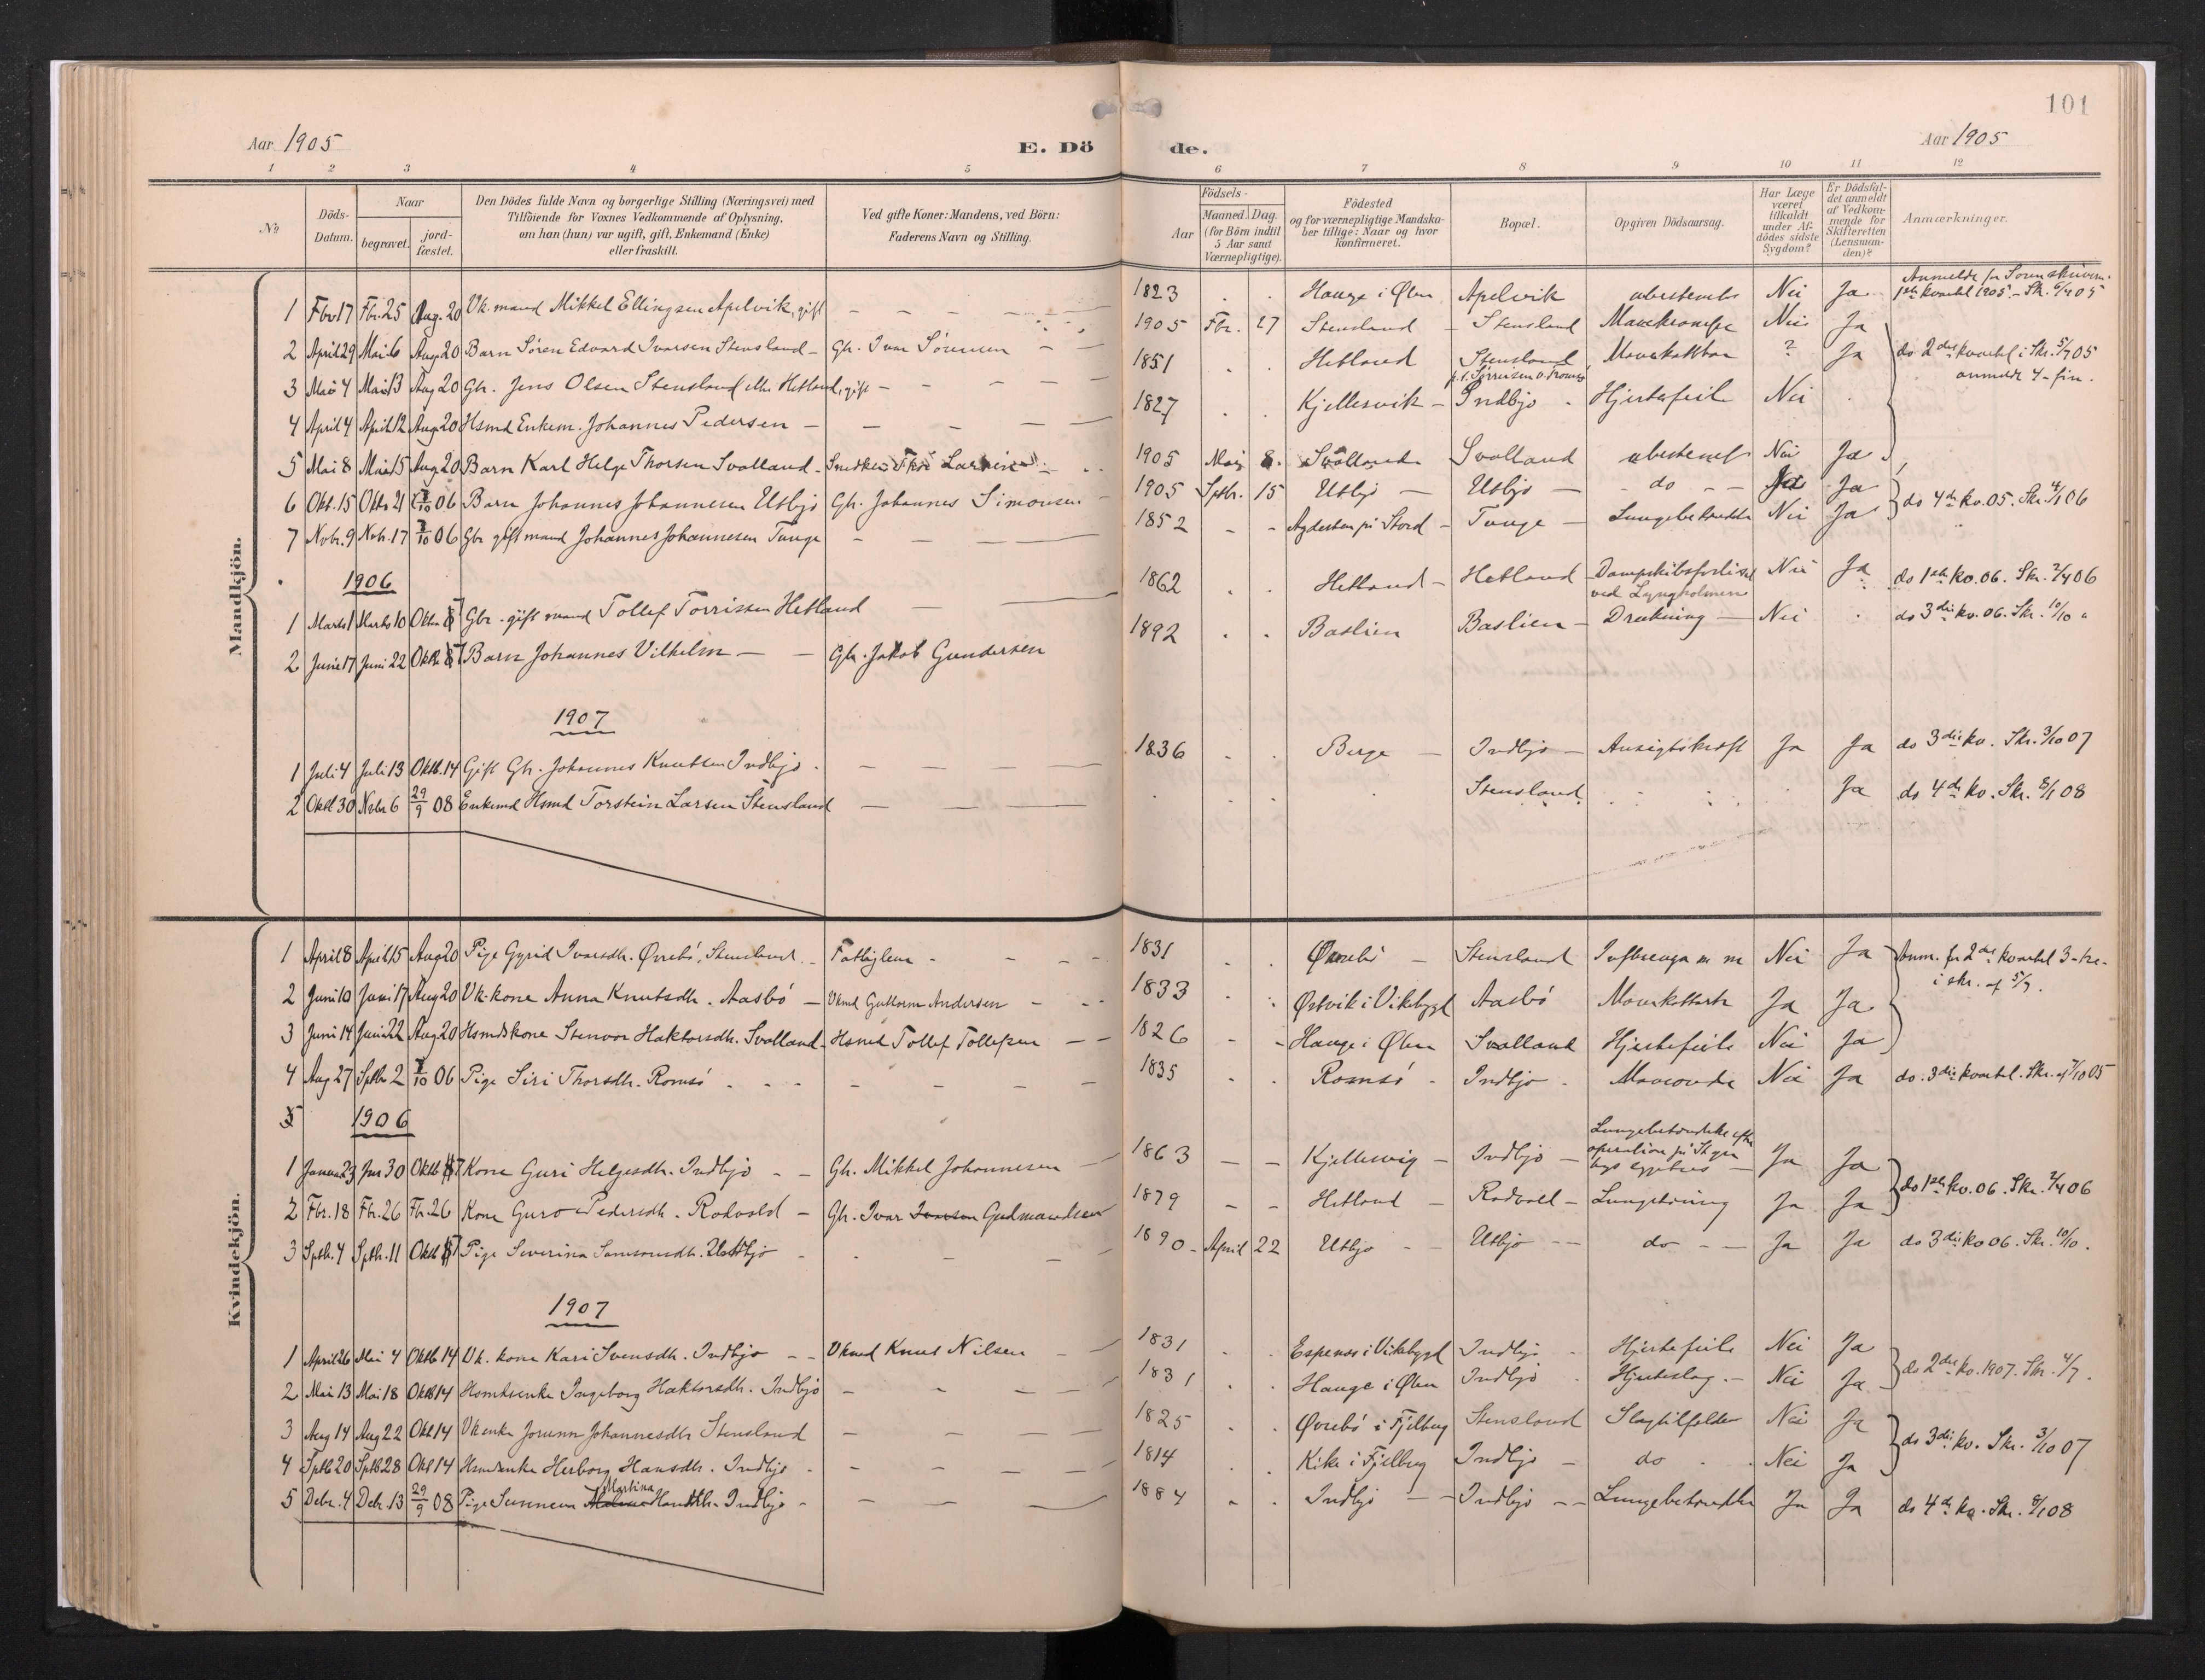 101
Aar 1905
E. Dö de.
Aar 1905
1 2 3 4 5 6 7 8 9 10 11 12
№
Döds-Datum.
Naar
begravet.
jord-fæstet.
Den Dödes fulde Navn og borgerlige Stilling (Næringsvei) med
Tilföiende for Voxnes Vedkommende af Oplysning,
om han (hun) var ugift, gift, Enkemand (Enke)
eller fraskilt.
Ved gifte Koner: Mandens, ved Börn:
Faderens Navn og Stilling.
Födsels-
Aar
Maaned. Dag.
(for Börn indtil
5 Aar samt
Værnepligtige).
Födested
og for værnepligtige Mandska-
ber tillige: Naar og hvor
konfirmeret.
Bopæl.
Opgiven Dödsaarsag.
Har Læge
været
tilkaldt
under Af-
dödes sidste
Sygdom?
Er Dödsfal-
det anmeldt
af Vedkom-
mende for
Skifteretten
(Lensman-
den)?
Anmærkninger.
Mandkjön.
1 Fbr 17 Fbr. 25 Aug. 20 Vk. mand Mikkel Ellingsen Apelvik, gift 1823 Hauge i Ølen Apelvik ubestemt Nei Ja 1ste kvartal 1905 - Skr. 6/4 05
2 April 29 Mai 6 Aug 20 Barn Søren Edvard Ivarsen Stensland Gbr. Ivar Sörensen 1905 Fbr. 27 Stensland Stensland Mavekrampe Nei Ja do 2det kvartal i Skr. 5/7 05
3 Mai 4 Mai 13 Aug 20 Gbr. Jens Olsen Stensland eller Hetland, gift 1851 Hetland Stensland ? Ja anmeldt 4-fire.
4 April 4 April 12 Aug 20 Hsmd Enkem. Johannes Pedersen 1827 Kjellesvik Indbjo Hjertefeil Nei
5 Mai 8 Mai 15 Aug 20 Barn Karl Helge Thorsen Svolland 1905 Mai 8. Svolland Svolland ubestemt Nei Ja
6 Okt. 15 Oktb 21 06 Barn Johannes Johannesen Utbjo Gbr. Johannes Simonsen 1905 Sptbr. 15 Utbjo Utbjo do Ja do 4de kv. 05. Skr. 4/1 06
7 Novbr. 9 Nvbr. 17 06 Gbr gift mand Johannes Johannesen Tunge 1852 Agdesten på Stord Tunge Lungebetændelse Nei Ja
1906
1 Marts 1 Marts 10 Oktbr Gbr. gift mand Tollef Torrissen Hetland 1862 Hetland Hetland Dampskibsforlis ved Lyngholmen Nei Ja do 1ste kv. 06. Skr. 2/4 06
2 Juni 17 Juni 22 Oktb Barn Johannes Vilhelm Gbr. Jakob Gundersen 1892 Baslien Baslien Drukning Nei do 3die kv. 06. Skr. 10/10
1907
1 Juli 4 Juli 13 Oktb. 14 Gift Gbr. Johannes Knutsen Indbjo 1836 Berge Indbjo Ansigtskræft Ja Ja do 3die kv. Skr. 3/10 07
2 Oktb 30 Nvbr 6 29/9 08 Enkemd Hsmd Torstein Larsen Stensland Stensland Ja do 4de kv. Skr. 8/1 08
Kvindekjön.
1 April 8 April 15 Aug 20 Pige Gyrid Ivarsdtr. Øvrebö, Stensland Fatliglem 1831 Øvrebö Stensland Influenza m m Nei Ja Anm. for 2det kvartal 3-tre-
2 Juni 10 Juni 17 Aug 20 Vk. kone Anna Knutsdtr. Aasbö Vkmd Guttorm Andersen 1833 Ørtvik i Vikebygd Aasbö Mavekatarrh Ja Ja i skr. af 5/7.
3 Juni 14 Juni 22 Aug 20 Hsmdskone Stenvor Haktorsdtr. Svolland Hsmd Tollef Tollefsen 1826 Hauge i Ølen Svolland Hjertefeil Nei Ja
4 Aug 27 Sptb 2 06 Pige Siri Thorsdtr. Romsö 1835 Romsö Indbjo Maveonde Nei Ja do. 3die kvartal. Skr. af 7/10 05
1906
1 Januar 23 Jan 30 Oktb Kone Guri Helgesdtr. Indbjo Gbr. Mikkel Johannesen 1863 Kjellesvig Indbjo Lungebetændelse efter operation på Ja Ja do 1ste kv. 06. Skr. 2/4 06
2 Fbr. 18 Fbr. 26 Fbr. 26 Kone Guro Pedersdtr. Rodvold Gbr. Ivar Ivarsen Gudmundsen 1879 Hetland Rodvold Lungetæring Ja Ja
3 Sptb. 4 Sptb. 11 Oktb Pige Severina Samsonsdtr. Utbjo 1890 April 22 Utbjo Utbjo do Ja Ja do 3die kv 06. Skr. 10/10.
1907
1 April 26 Mai 4 Oktb 14 Vk. kone Kari Svensdtr. Indbjo Vkmd Knut Nilsen 1831 Espenes i Vikebygd Indbjo Hjertefeil Nei Ja do 2det kv. 1907. Skr. 4/7.
2 Mai 13 Mai 18 Oktb 14 Hsmdsenke Ingeborg Haktorsdtr. Indbjo 1831 Hauge i Ølen Indbjo Hjerteslag Nei Ja
3 Aug 14 Aug 22 Okt 14 Vkenke Jorunn Johannesdtr Stensland 1825 Øvrebö i Fjelberg Stensland Slagtilfælde Nei Ja do 3die kv. Skr. 3/10 07
4 Sptb 20 Sptb 28 Okt 14 Hsmdenke Herborg Hansdtr. Indbjo 1814 Kike i Fjelberg Indbjo do Nei Ja
5 Debr. 4 Debr. 13 29/9 08 Pige Sunneva Martina Hansdtr. Indbjo 1884 Indbjo Indbjo Lungebetændelse Ja Ja do 4de kv. Skr. 8/1 08